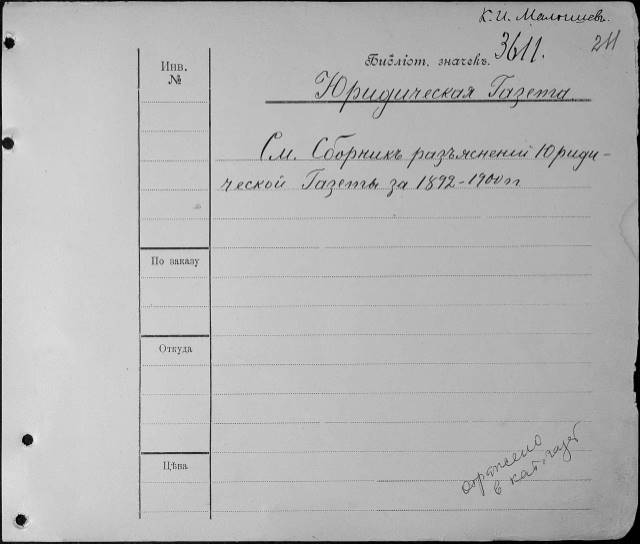 К. И. Малышевъ.
Библіот. значекъ. 3611.
211
Инв.
№
Юридическая Газета.
См. Сборникъ разъясненій Юриди-
ческой Газеты за 1892-1900 гг
По заказу
Откуда
Цѣна
отражено
в кат. газет